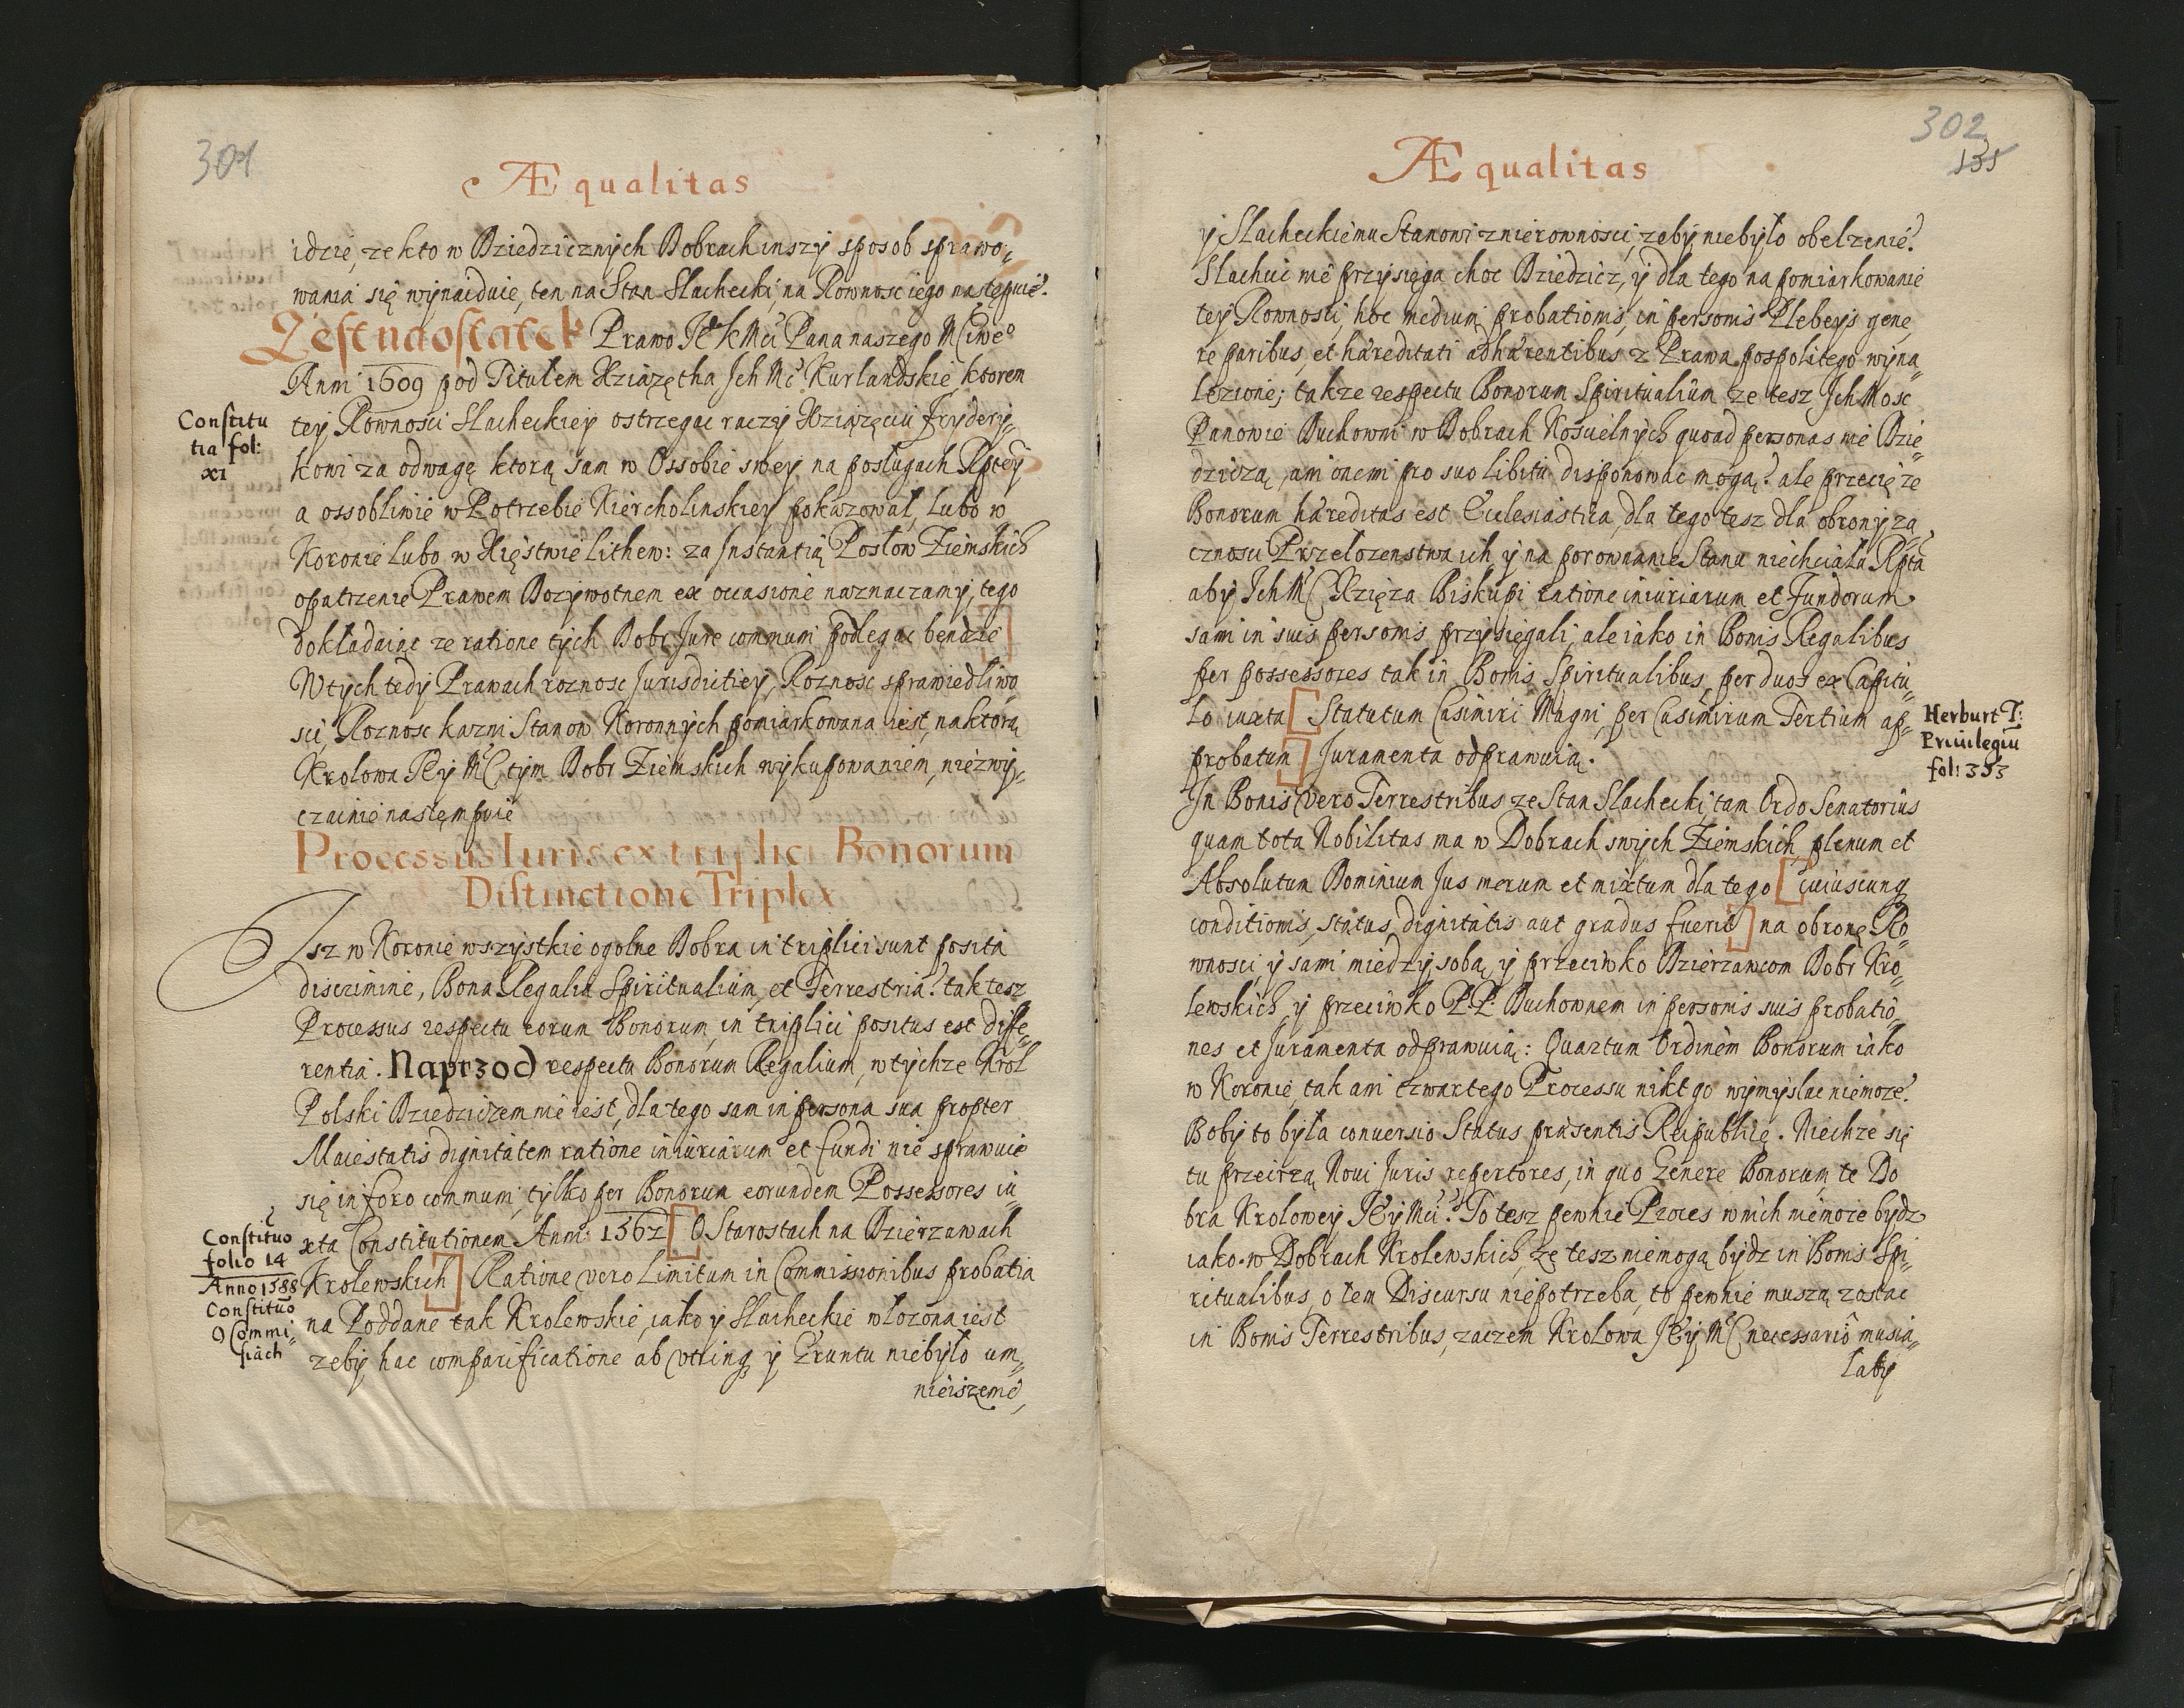 301
Æqualitas
idzie, ze kto w Dziedzicznych Dobrach inszy sposob sprawo„
wania się wynaiduie, ten na Stan Slachecki, na Rownosc iego nastempuie.
Jest naostatek Prawo Je° K Mci Pana naszego Mciwe°
Anni 1609 pod Titułem Xiązętha Ich Mc Kurlandskie, ktorem
Constitu
tia fol:
XI
tey Rownosci Slacheckiey ostrzegac raczy Xiązęciu Frydery„
kowi za odwagę ktorą sam w Ossobie swey na posługach Rptey
a ossobliwie w Potrzebie Kiercholinskiey pokazował, Lubo w
Koronie lubo w Xięstwie Lithew: za Instantią Posłow Ziemskich
opatrzenie Prawem Dozywotnem ex occasione naznaczamy, tego
dokładaiąc ze ratione tych Dobr Jure communi podlegac bendzie
W tych tedy Prawach roznosc Jurisdictiey, Roznosc sprawiedliwo
sci, Roznosc kazni Stanow Koronnych pomiarkowana iest, na ktorą
Krolowa JEy MC tym Dobr Ziemskich wykupowaniem, niezwy„
czainie nastempuie
Processus Iuris ex triplici Bonorum
Distinctione Triplex
Isz w Koronie wszystkie ogolne Dobra in triplici sunt posita
discrimine, Bona Regalia Spiritualium, et Terrestria: tak tesz
Processus respectu eorum Bonorum, in triplici positus est diffe„
rentia. Naprzod respectu Bonorum Regalium, w tychze Krol
Polski Dziedzicem nie iest, dla tego sam in persona sua propter
Maiestatis dignitatem ratione iniuriarum et fundi nie sprawuie
się in foro communi, tylko per Bonorum eorundem Possessores iu„
xta Constitutionem Anni 1562 [O Starostach na Dzierzawach
Constituo
folio 14
Anno 1588
Constituo
O Commi„
siach
Krolewskich] Ratione vero Limitum in Commissionibus probatia
na Poddane tak Krolewskie, iako y Slacheckie włozona iest
zeby hac comparificatione ab utrinq y Gruntu niebyło um„
nieiszenie,
302
135
Æqualitas
y Slacheckiemu Stanowi z nierownosci, zeby niebyło obelzenie.
Slachcic nie przysięga choc Dziedzic, y dla tego na pomiarkowanie
tey Rownosci, hoc medium probationis, in personis Plebeys gene
re paribus, et hæreditati adhærentibus z Prawa pospolitego wyna„
lezione; takze respectu Bonorum Spiritualium ze tesz Ich Mosc
Panowie Duchowni w Dobrach Koscielnych quoad personas nie Dzie„
dziczą, ani onemi pro suo libitu disponowac mogą: ale przecię ze
Bonorum hæreditas est Ecclesiastica, dla tego tesz dla obrony za„
cnosci Przełozenstwa ich y na porownanie Stanu niechciała Rpta
aby Ich MC Xzięza Biskupi ratione iniuriarum et Fundorum
sami in suis personis przysięgali, ale iako in Bonis Regalibus
per possessores tak in Bonis Spiritualibus, per duos ex Capitu„
lo iuxta [Statutum Casimiri Magni, per Casimirum Tertium ap„
Herburt T:
Priuilegiu
fol: 353
probatum] Juramenta odprawuią.
In Bonis vero Terrestribus ze Stan Slachecki, tam Ordo Senatorius
quam tota Nobilitas ma w Dobrach swych Ziemskich, plenum et
Absolutum Dominium Jus merum et mixtum dla tego [cuiuscunq
conditionis, status, dignitatis aut gradus fuerit] na obronę Ro„
wnosci, y sami miedzy sobą, y przeciwko Dzierzawcom Dobr Kro„
lewskich, y przeciwko P.P. Duchownem in personis suis probatio„
nes et Juramenta odprawuią: Quartum Ordinem Bonorum iako
w Koronie, tak ani czwartego Processu nikt go wymyslac niemoze.
Boby to była conuersio Status præsentis Reipublicę. Niechze się
tu przeirzą Noui Juris repertores, in quo Genere Bonorum, te Do
bra Krolowey JEy Mci: To tesz pewnie Proces w nich niemoze bydz
iako w Dobrach Krolewskich, ze tesz niemogą bydz in Bonis Spi„
ritualibus, o tem Discursu niepotrzeba, to pewnie muszą zostac
in Bonis Terrestribus, zaczem Krolowa JEy MC necessario musia„
łaby